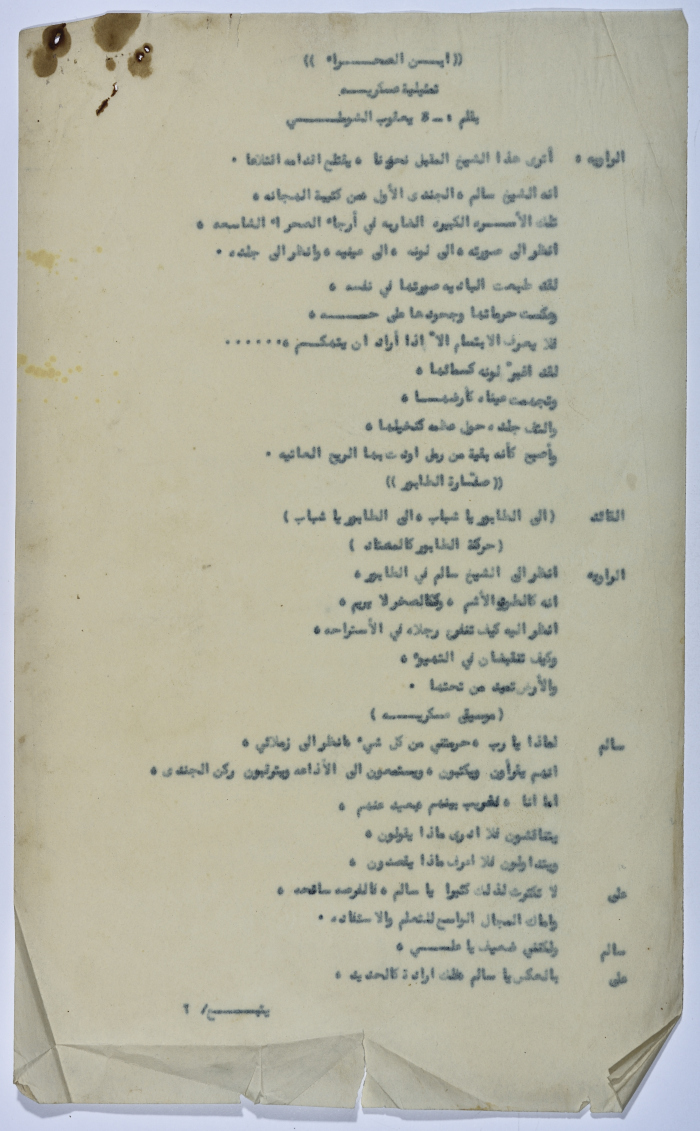 (( ابـــن الصحـــراء ))
تمثيلية عسكريـــه
بقلم
الراويه : أترى هذا الشيخ المقبل نحونا ، يقتلع اقدامه اقتلاعا .
انه الشيخ سالم ، الجندى الأول من كتيبة الهجانه ،
تلك الأســـره الكبيره الضاربه في أرجاء الصحراء الشاسعه ،
انظر الى صورته ، الى لونه ، الى عينيه ، وانظر الى جلده .
لقد طبعت الباديه صورتها في نفسه ،
وعكست حرمانها وجحودها على
فلا يعرف الابتسام الاّ اذا أراد ان يتهكــم ، ......
لقد اغبرّ لونه كسمائها ،
وتجهمت عيناه كأرضهـــا ،
والتف جلده حول عظمه كنخيلها ،
وأصبح كأنه بقية من رمل اودت بها الريح العاتيه .
(( صفّارة الطابور ))
القائد (الى الطابور يا شباب ، الى الطابور يا شباب )
(حركة الطابور كالمعتاد )
الراويه انظر الى الشيخ سالم في الطابور ،
انه كالطود الأشم ، وكالصخر لا يريم ،
انظر اليه كيف رجلاه في الأستراحه ،
وكيف في التهيؤ ،
والأرض تميد من تحتها .
(موسيقى عسكريـــه )
سالم لماذا يا رب ، حرمتني من كل شيء ، انظر الى زملائي ،
انهم يقرأون ويكتبون ، ويستمعون الى الأذاعه ويترقبون ركن الجندى ،
اما انا ، فغريب بينهم بعيد عنهم ،
يتناقشون فلا ادرى ماذا يقولون ،
ويتداولون فلا اعرف ماذا يقصدون ،
على لا تكترث لذلك كثيرا يا سالم ، فالفرصه سانحه ،
وامامك المجال الواسع للتعلم والاستفاده .
سالم ولكنني ضعيف يا علـــي ،
على بالعكس يا سالم ، فلك ارادة كالحديد ،
يتبـــــع/ ٢